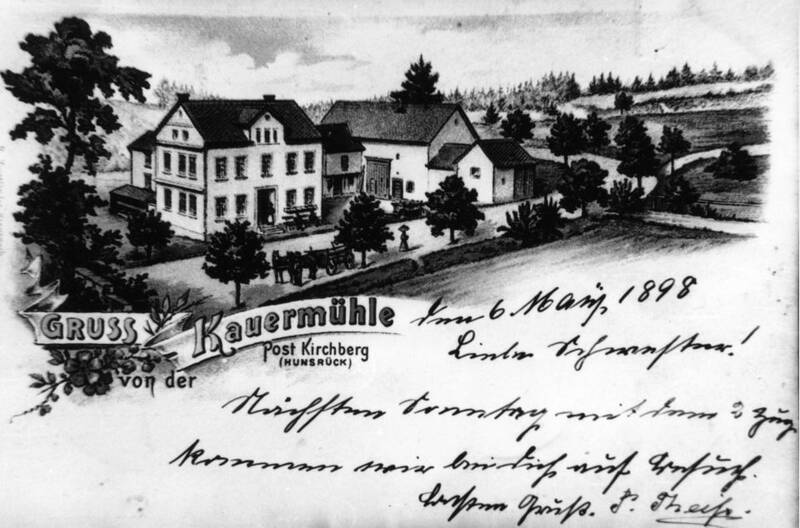 GRUSS
von der
Kauermühle
Post Kirchberg
(HUNSRÜCK)
den 6 May 1898
Liebe Schwester!
Nächsten Sonntag mit dem 2 Zug
kommen wir bei dich auf Besuch.
Besten Gruß. P. Theis.